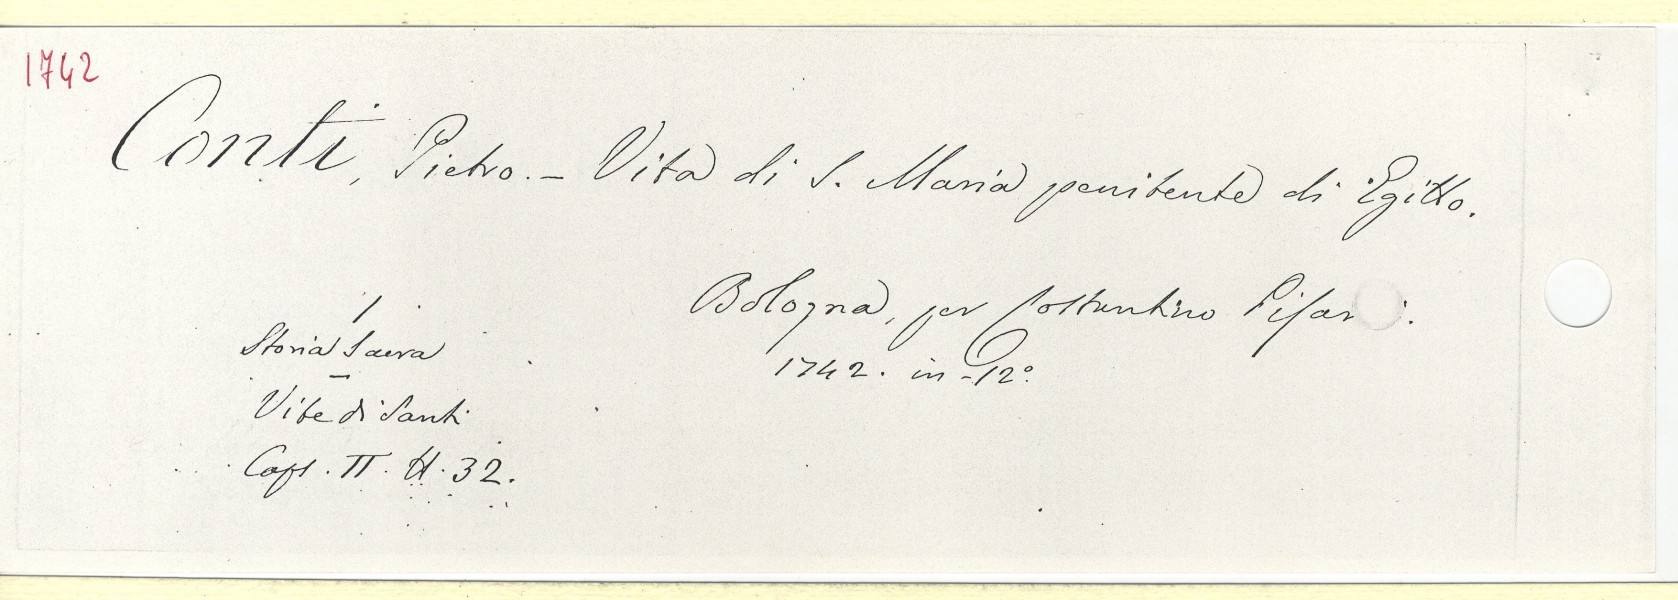 1742
Conti, Pietro. - Vita di S. Maria penitente di Egitto.
Bologna, per Costantino Pisar i.
1742. in-12º.
1
Storia Sacra
Vite di Santi
Caps. II. H. 32.